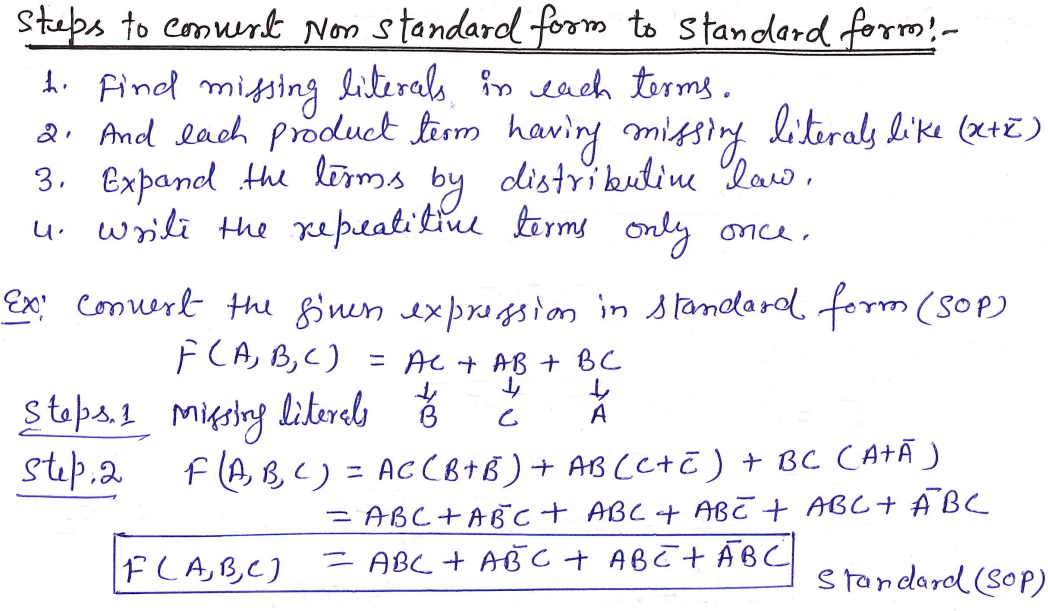 Steps to convert Non standard form to standard form:-
1. Find missing literals in each terms.
2. And each product term having missing literals like (x+x̄)
3. Expand the terms by distributive law.
4. Write the repeatitive terms only once.
Ex: Convert the given expression in standard form (SOP)
F(A,B,C) = AC + AB + BC
Steps.1 Missing literals ↓B ↓C ↓A
Step.2 F(A,B,C) = AC(B+B̄) + AB(C+C̄) + BC(A+Ā)
= ABC + AB̄C + ABC + ABC̄ + ABC + ĀBC
F(A,B,C) = ABC + AB̄C + ABC̄ + ĀBC
Standard (SOP)